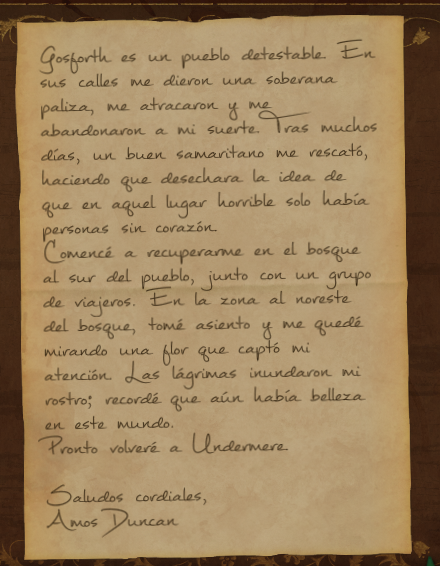 Gosforth es un pueblo detestable. En
sus calles me dieron una soberana
paliza, me atracaron y me
abandonaron a mi suerte. Tras muchos
días, un buen samaritano me rescató,
haciendo que desechara la idea de
que en aquel lugar horrible solo había
personas sin corazón.
Comencé a recuperarme en el bosque
al sur del pueblo, junto con un grupo
de viajeros. En la zona al noreste
del bosque, tomé asiento y me quedé
mirando una flor que captó mi
atención. Las lágrimas inundaron mi
rostro; recordé que aún había belleza
en este mundo.
Pronto volveré a Undermere.
Saludos cordiales,
Amos Duncan